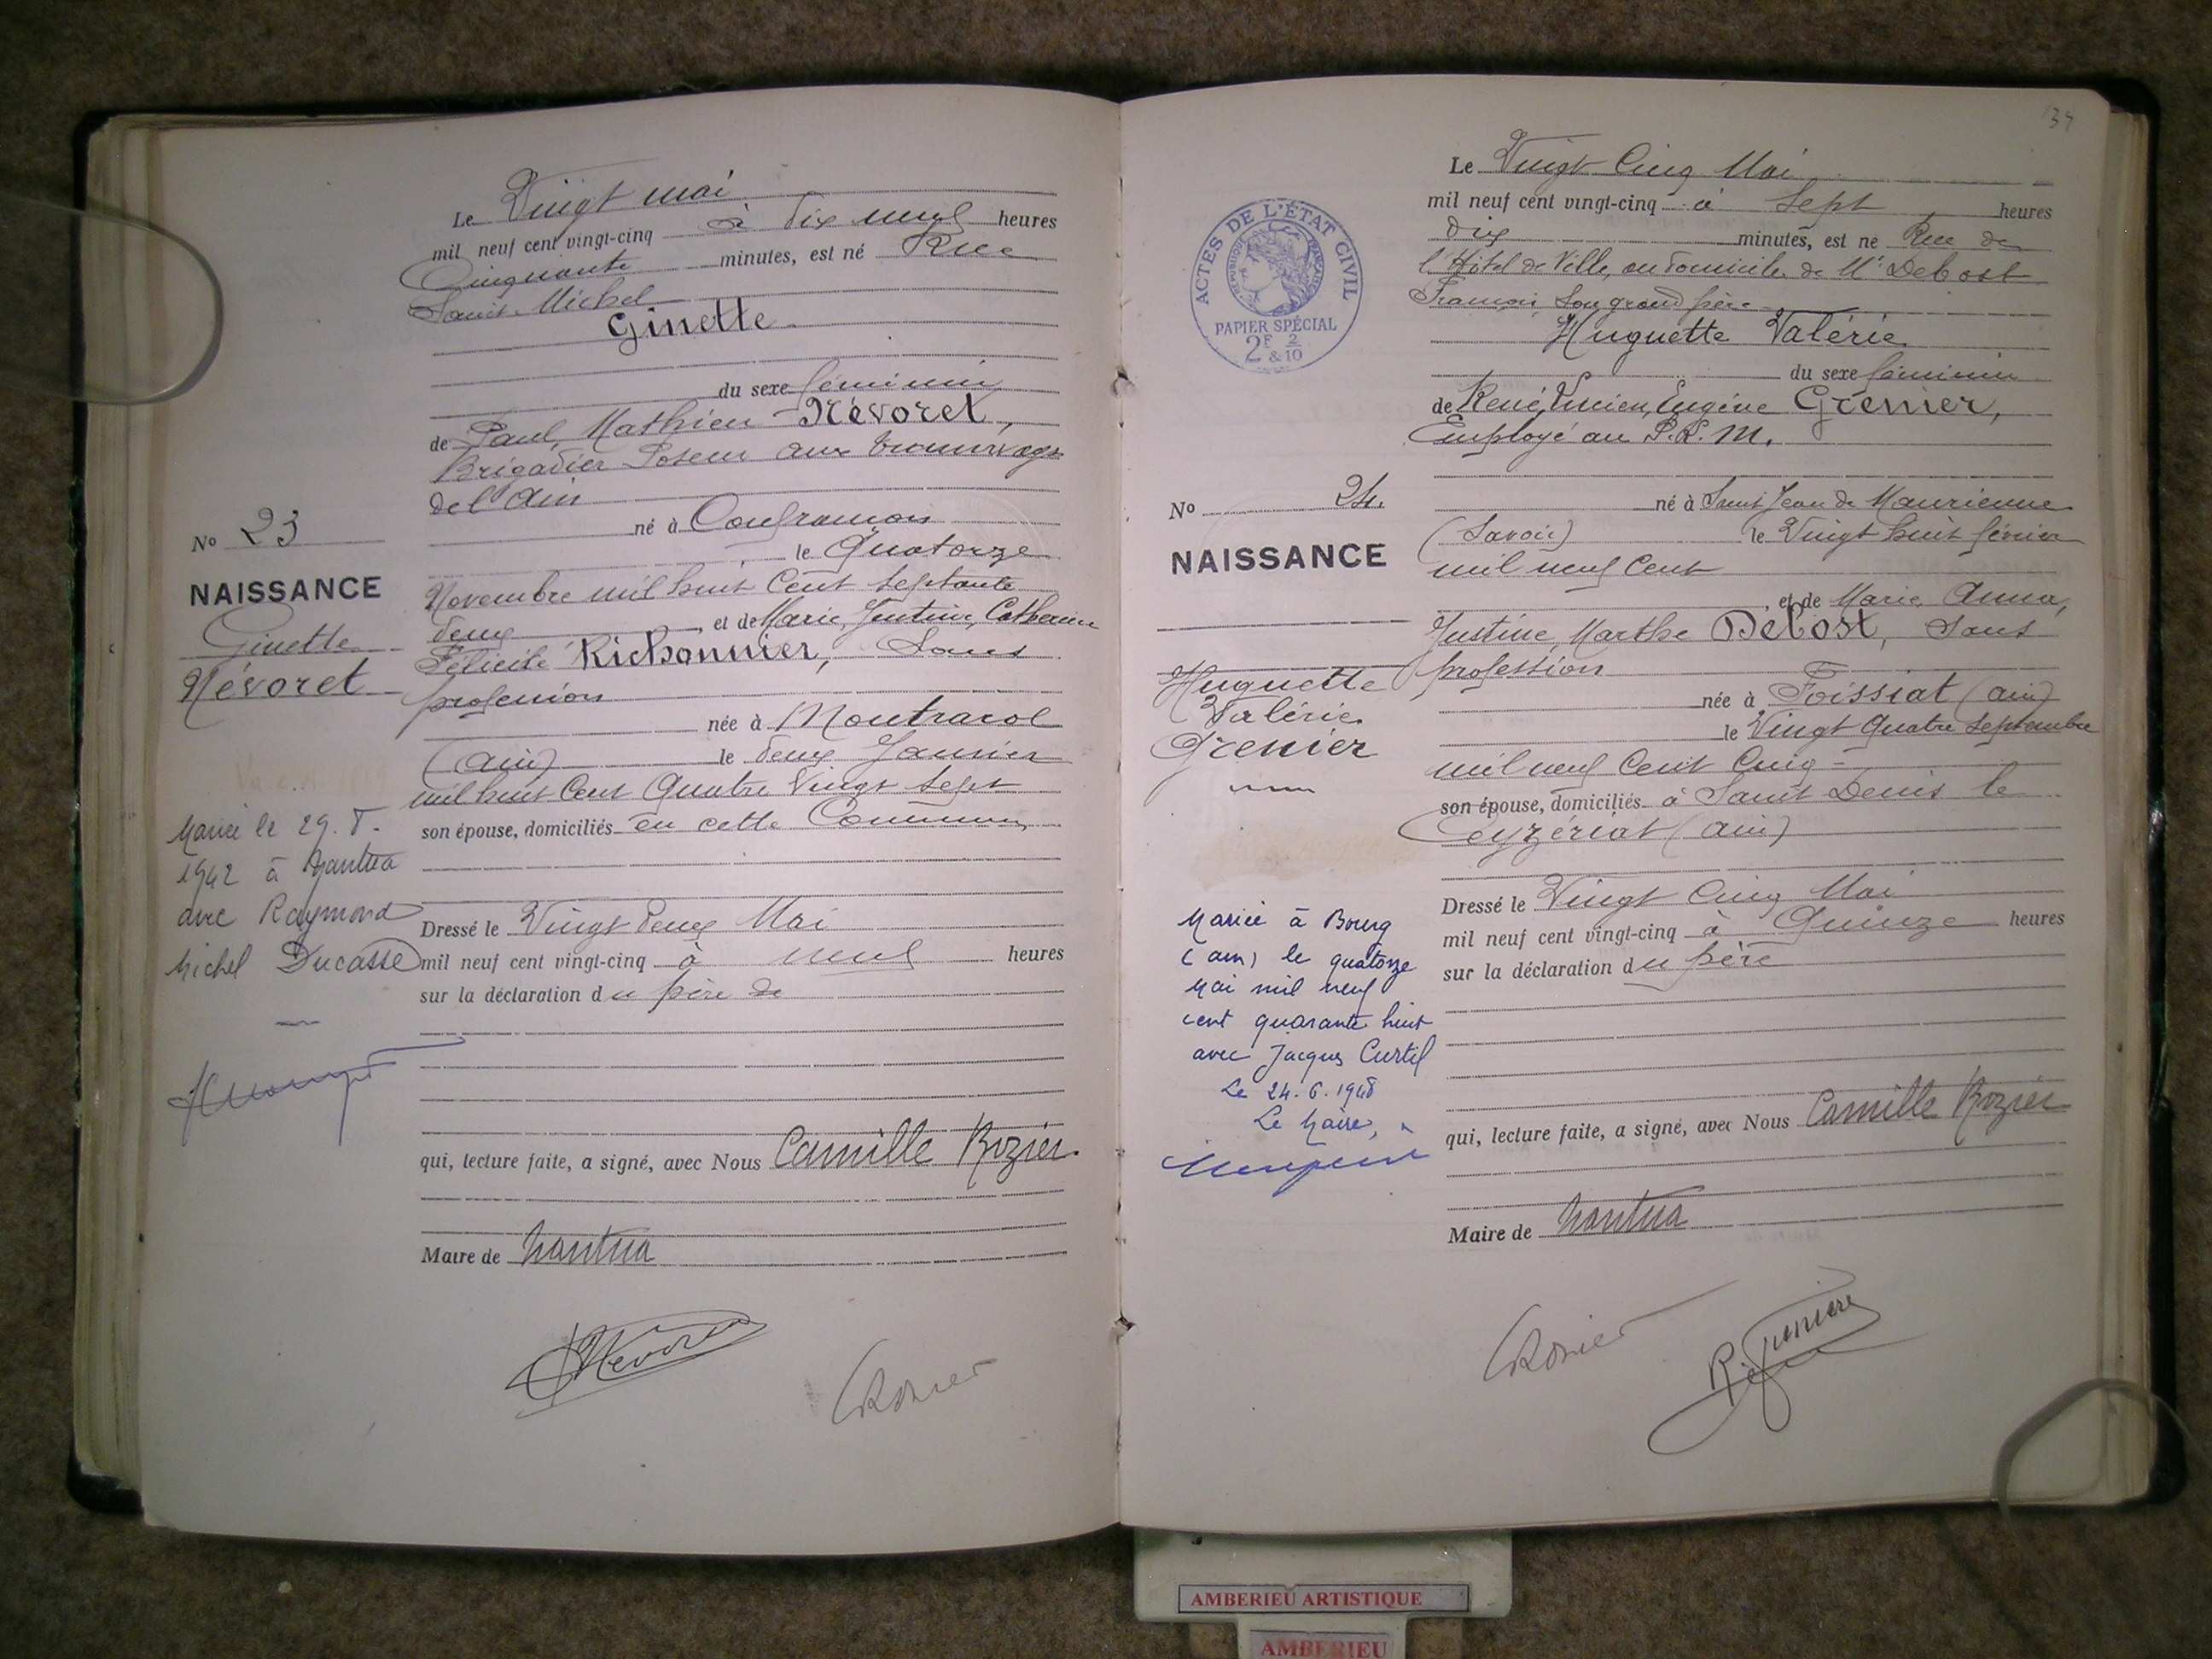 Le Vingt mai
mil neuf cent vingt-cinq à dix neuf heures
Cinquante minutes, est né Rue
Saint Michel
Ginette
du sexe féminin
de Paul, Mathieu Névoret,
Brigadier Poseur aux tramways
de l'Ain
né à Confrançon
le Quatorze
Novembre mil huit Cent septante
deux, et de Marie, Justine, Catherine
Félicité Richonnier, Sans
profession
née à Montracol
(Ain) le deux Janvier
mil huit Cent Quatre Vingt sept
son épouse, domiciliés en cette Commune
Dressé le Vingt deux Mai
mil neuf cent vingt-cinq à neuf heures
sur la déclaration du père de
qui, lecture faite, a signé, avec Nous Camille Rozier
Maire de Nantua
No 23
NAISSANCE
Ginette
Névoret
Mariée le 29.8.
1942 à Nantua
avec Raymond
Michel Ducasse
34
Le Vingt Cinq Mai
mil neuf cent vingt-cinq à Sept heures
dix minutes, est né Rue de
l'Hôtel de Ville, au domicile de Mr Debost
François son grand père
Huguette Valérie
du sexe féminin
de René, Lucien, Eugène Grenier,
Employé au P.L.M.
né à Saint Jean de Maurienne
(Savoie) le Vingt huit février
mil neuf Cent
, et de Marie Anna,
Justine, Marthe Debost, Sans
profession
née à Foissiat (Ain)
le Vingt Quatre Septembre
mil neuf Cent Cinq
son épouse, domiciliés à Saint Denis le
Ceyzériat (Ain)
Dressé le Vingt Cinq Mai
mil neuf cent vingt-cinq à Quinze heures
sur la déclaration du père
qui, lecture faite, a signé, avec Nous Camille Rozier
Maire de Nantua
Rozier
ACTES DE L'ÉTAT CIVIL
RÉPUBLIQUE FRANÇAISE
PAPIER SPÉCIAL
2F 2
& 10
No 24.
NAISSANCE
Huguette
Valérie
Grenier
Mariée à Bourg
(Ain) le quatorze
Mai mil neuf
cent quarante huit
avec Jacques Curtil
Le 24.6.1948
Le Maire,
AMBERIEU ARTISTIQUE
AMBERIEU